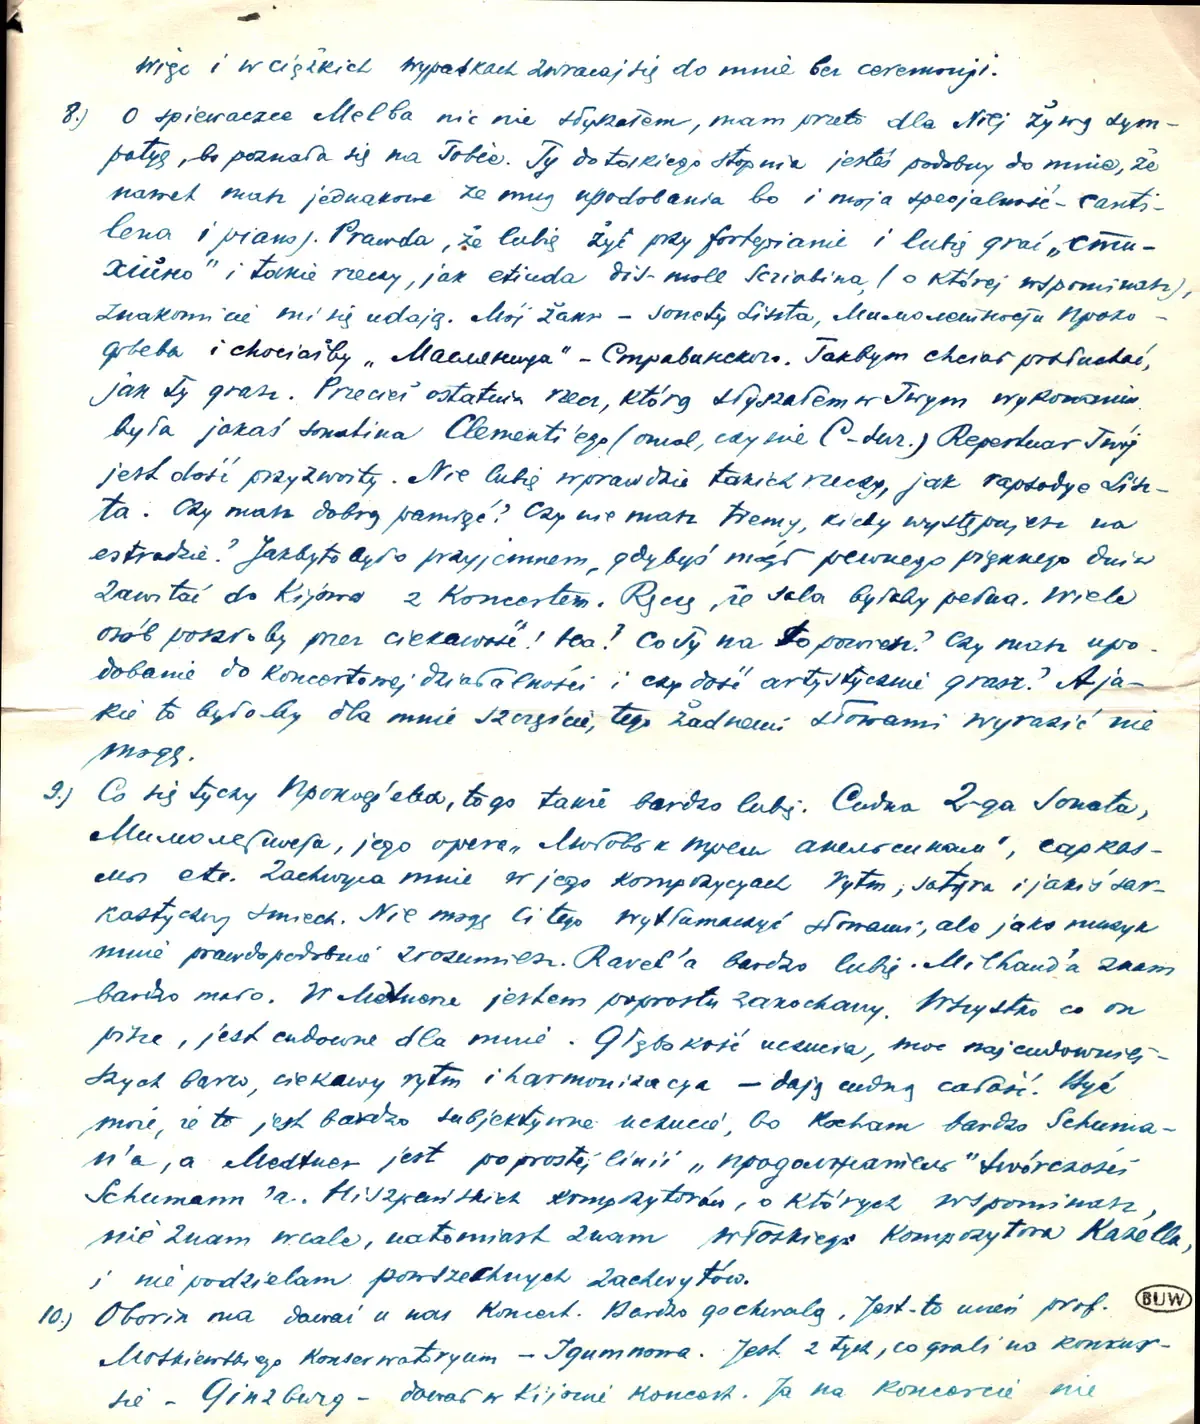 więc i w ciężkich wypadkach zwracaj się do mnie bez ceremonji.
8.) O śpiewaczce Melba nic nie słyszałem, mam przeto dla Niej żywą sym-
patyę, bo poznała się na Tobie. Ty do takiego stopnia jesteś podobny do mnie, że
nawet masz jednakowe ze mną upodobania bo i moja specjalność - canti-
lena i piano. Prawda, że lubię żyć przy fortepianie i lubię grać „сти-
хийно" i takie rzeczy, jak etiuda dis-moll Scriabina, (o której wspominasz),
znakomicie mi się udają. Mój żanr - sonety Liszta, Мимолетности Проко-
фьева i chociażby „Масляница" - Стравинского. Jakbym chciał posłuchać,
jak Ty grasz. Przecież ostatnia rzecz, którą słyszałem w Twym wykonaniu
była jakaś sonatina Clementi'ego (omal, czy nie C-dur.) Repertuar Twój
jest dość przyzwoity. Nie lubię wprawdzie takich rzeczy, jak rapsodye Lisz-
ta. Czy masz dobrą pamięć? Czy nie masz tremy, kiedy występujesz na
estradzie? Jakby to było przyjemnem, gdybyś mógł pewnego pięknego dnia
zawitać do Kijowa z Koncertem. Ręczę, że sala byłaby pełna. Wiele
osób poszłoby przez ciekawość! Ha? Co Ty na to powiesz? Czy masz upo-
dobanie do koncertowej działalności i czy dość artystycznie grasz? A ja-
kie to byłoby dla mnie szczęście, tego żadnemi słowami wyrazić nie
mogę.
9.) Co się tyczy Прокофьева, to go także bardzo lubię. Cudna 2-ga Sonata,
Мимолетности, jego opera „Любовь к трем апельсинам", сарказ-
мы etc. Zachwyca mnie w jego kompozycjach rytm, satyra i jakiś sar-
kastyczny śmiech. Nie mogę Ci tego wytłumaczyć słowami, ale jako muzyk
mnie prawdopodobnie zrozumiesz. Ravel'a bardzo lubię. Milhaud'a znam
bardzo mało. W Medtnerze jestem poprostu zakochany. Wszystko co on
pisze, jest cudowne dla mnie. Głębokość uczucia, moc najcudowniej-
szych barw, ciekawy rytm i harmonizacja - dają cudną całość. Być
może, że to jest bardzo subjektywne uczucie, bo kocham bardzo Schuma-
n'a, a Medtner jest po prostej linii „продолжатель" twórczości
Schumann'a. Hiszpańskich kompozytorów, o których wspominasz,
nie znam wcale, natomiast znam włoskiego Kompozytora Kazella,
i nie podzielam powszechnych zachwytów.
10.) Oborin ma dawać u nas Koncert. Bardzo go chwalą. Jest-to uczeń prof.
Moskiewskiego Konserwatoryum - Igumnowa. Jest z tych, co grali na konkur-
sie - Ginzburg - dawał w Kijowie Koncert. Ja na koncercie nie
BUW